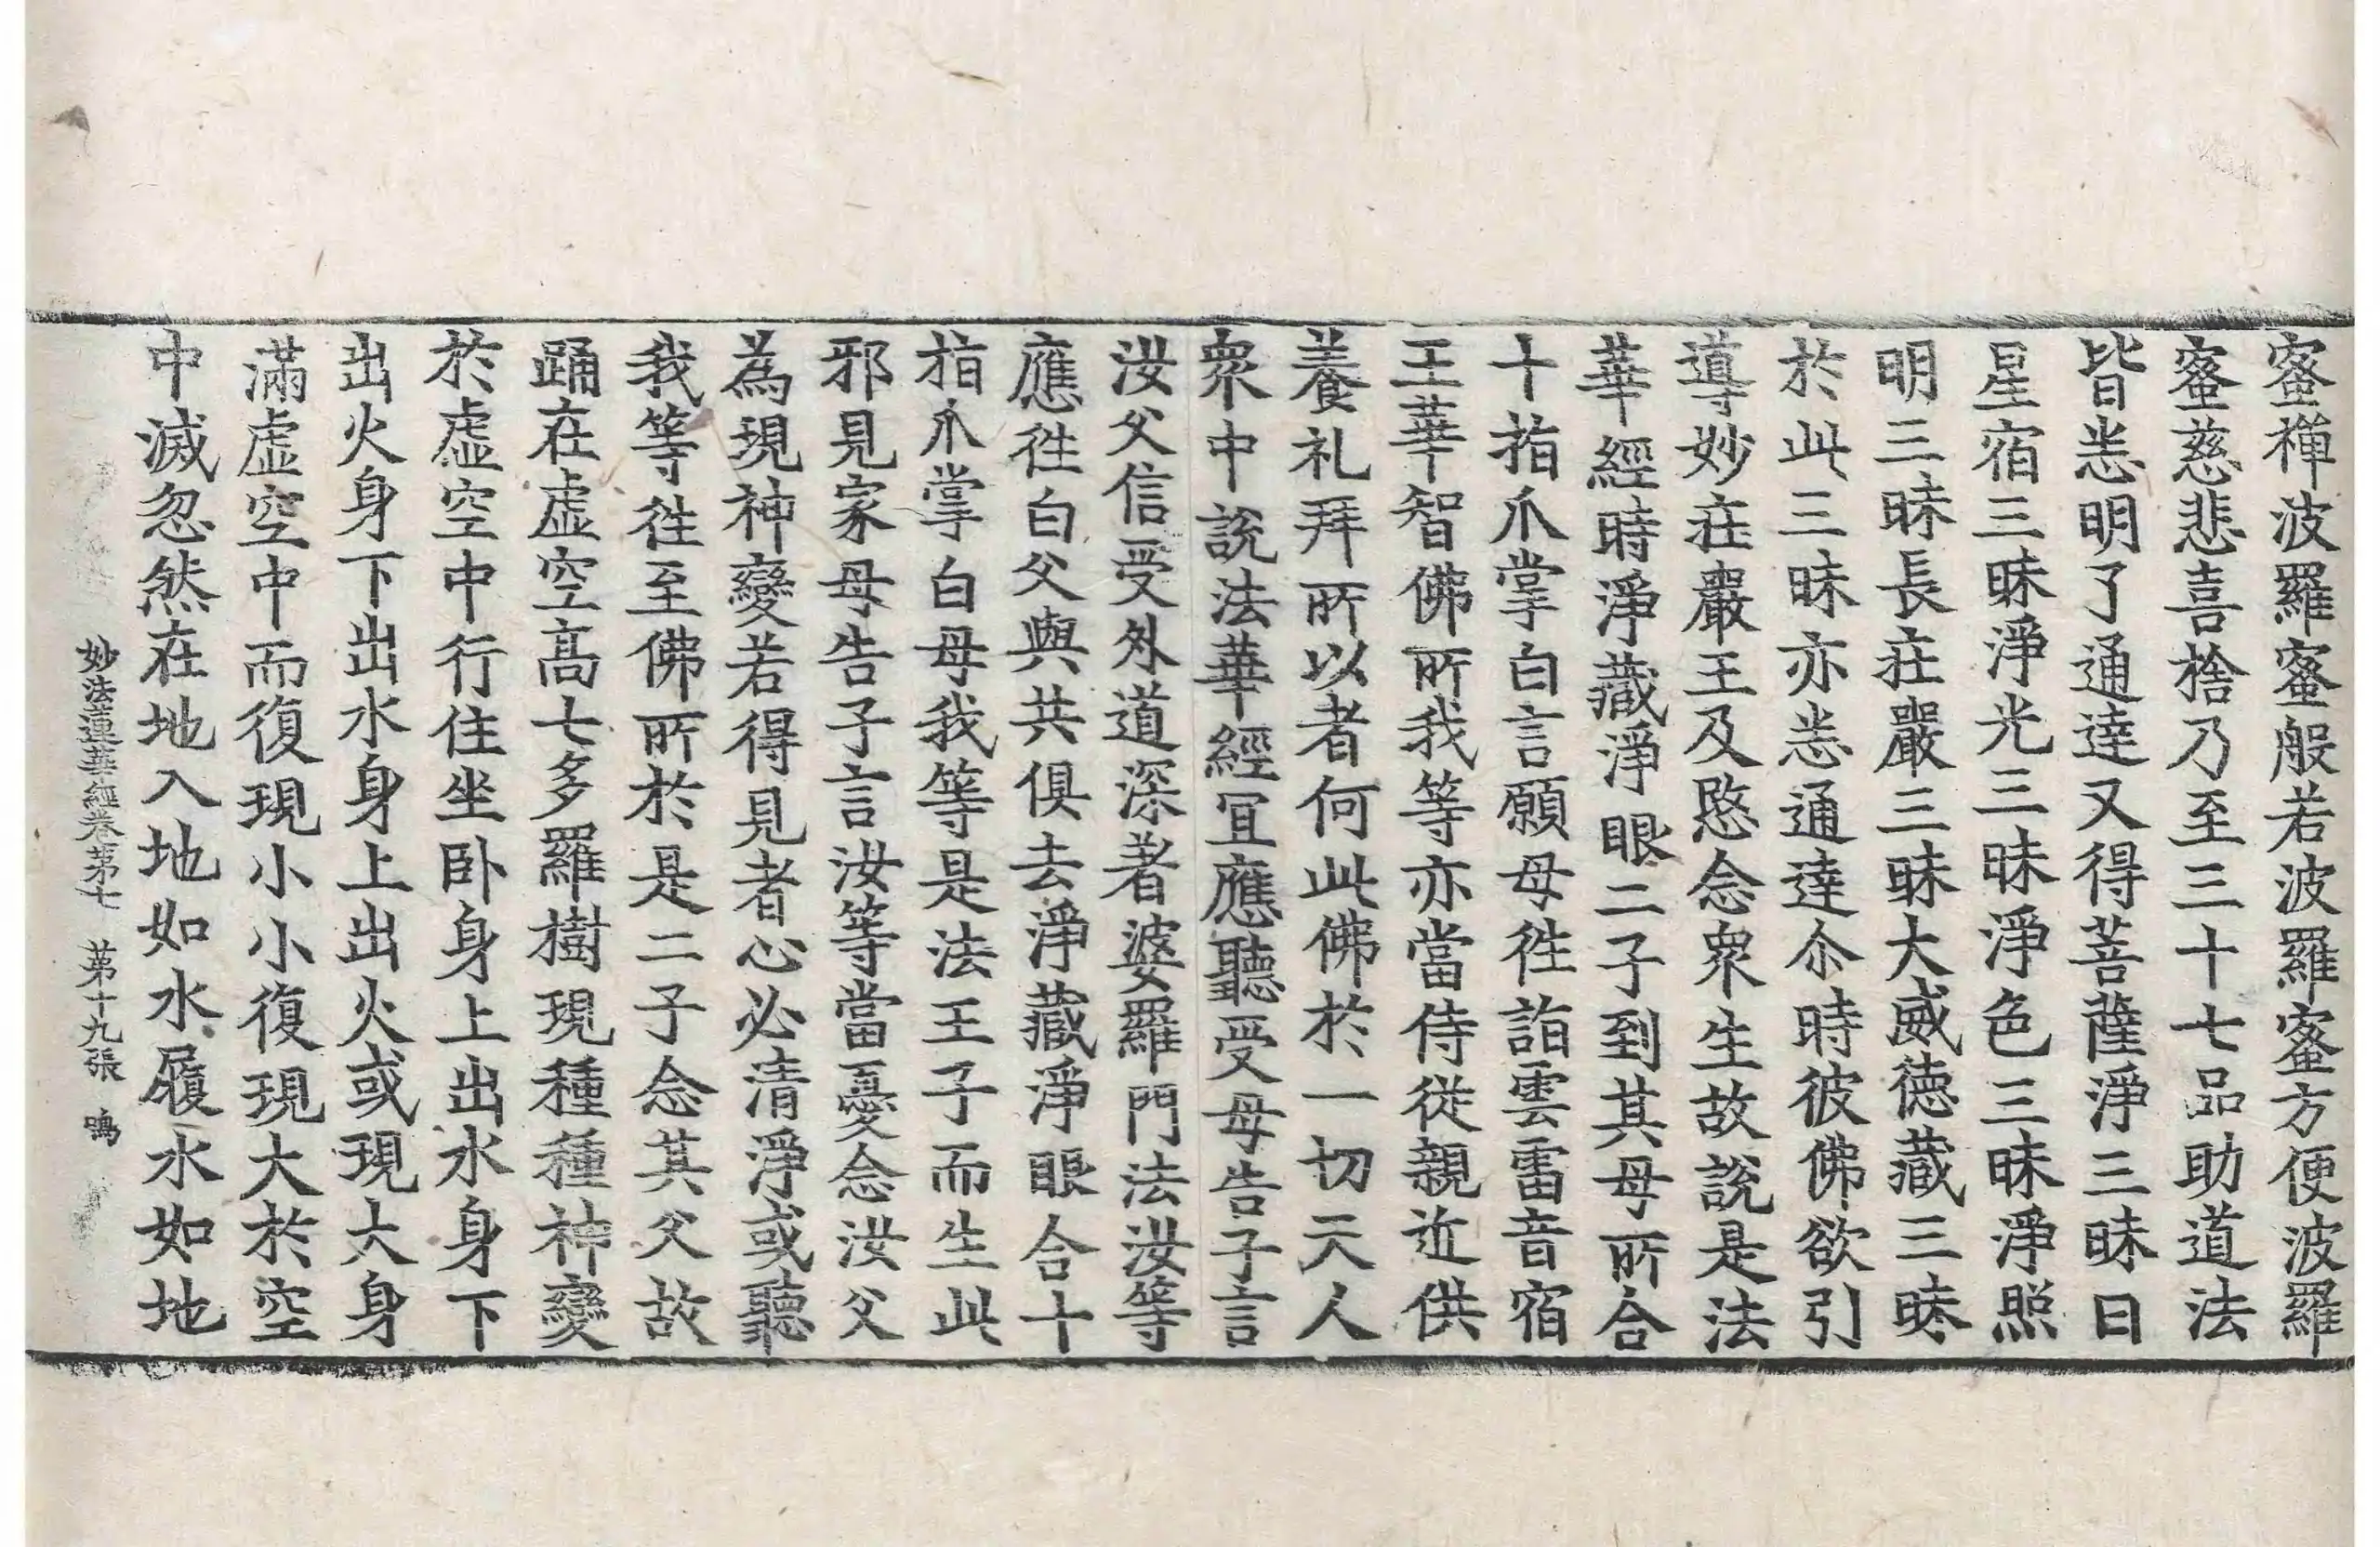 蜜禪波羅蜜般若波羅蜜方便波羅
蜜慈悲喜捨乃至三十七品助道法
皆悉明了通達又得菩薩淨三昧日
星宿三昧淨光三昧淨色三昧淨照
明三昧長莊嚴三昧大威德藏三昧
於此三昧亦悉通達尒時彼佛欲引
導妙莊嚴王及愍念衆生故說是法
華經時淨藏淨眼二子到其母所合
十指爪掌白言願母往詣雲雷音宿
王華智佛所我等亦當侍從親近供
養礼拜所以者何此佛於一切天人
衆中說法華經宜應聽受母告子言
汝父信受外道深著婆羅門法汝等
應往白父與共俱去淨藏淨眼合十
指爪掌白母我等是法王子而生此
邪見家母告子言汝等當憂念汝父
為現神變若得見者心必清淨或聽
我等往至佛所於是二子念其父故
踊在虛空高七多羅樹現種種神變
於虛空中行住坐卧身上出水身下
出火身下出水身上出火或現大身
滿虛空中而復現小小復現大於空
中滅忽然在地入地如水履水如地
妙法蓮華經卷第七 第十九張 鳴